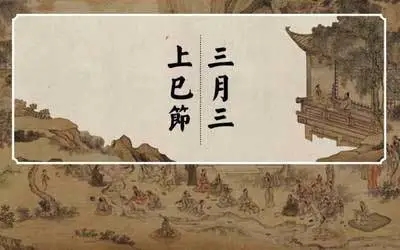 三月三
上巳節